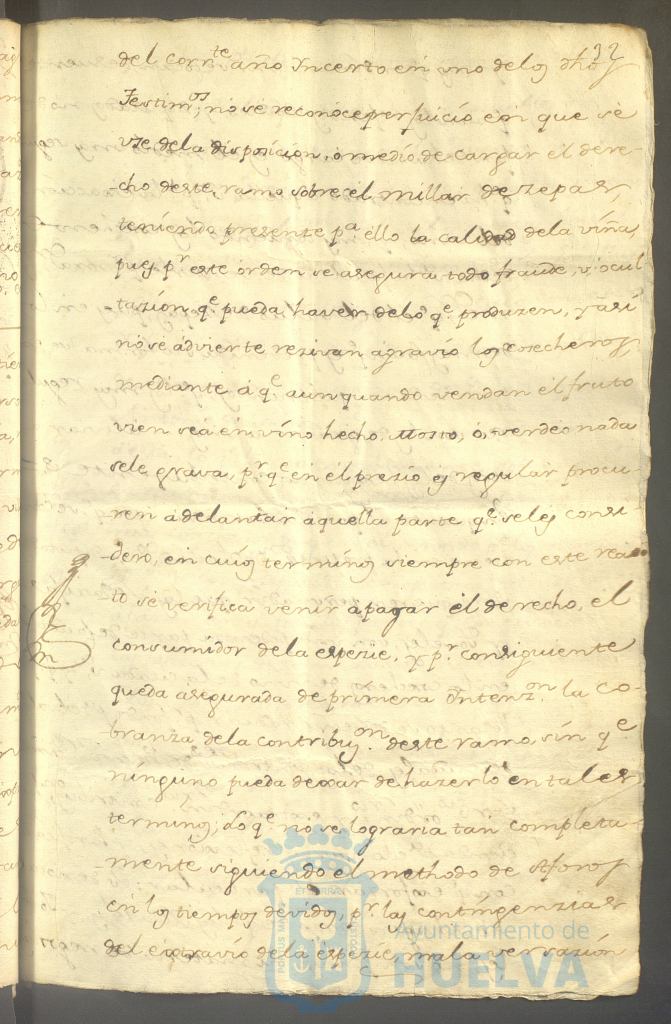 32
del corr.te año Yncerto en uno de los dhos
Testim.os, no se reconoce perjuicio en que se
use de la disposicion, o medio de cargar el dere-
cho deste ramo sobre el millar de zepas,
teniendo presente p.a ello la calidad de la viña,
pues p.r este orden se asegura todo fraude, u ocul
tazion q.e pueda haver de lo q.e produzen, y asi
no se advierte rezivan agravio los cosecheros
mediante a q.e aun quando vendan el fruto
vien sea en vino hecho, Mosto, o, verdeo nada
sele grava, p.r q.e en el prezio es regular procu-
ren adelantar aquella parte q.e se les consi-
dero, en cuios terminos siempre con este rea-
to se verifica venir a pagar el derecho, el
consumidor de la espezie, y p.r consiguiente
queda asegurada de primera Yntenz.on la co-
branza de la contribuz.on deste ramo, sin q.e
ninguno pueda dexar de hazerlo en tales
terminos; Lo q.e no se lograria tan completa-
mente siguiendo el methodo de Aforos
en los tiempos devidos, p.r las contingenzias
del extravio de la espezie, mala versazion
PORTUS MARIS ET TERRAE CUSTODIA
Ayuntamiento de
HUELVA